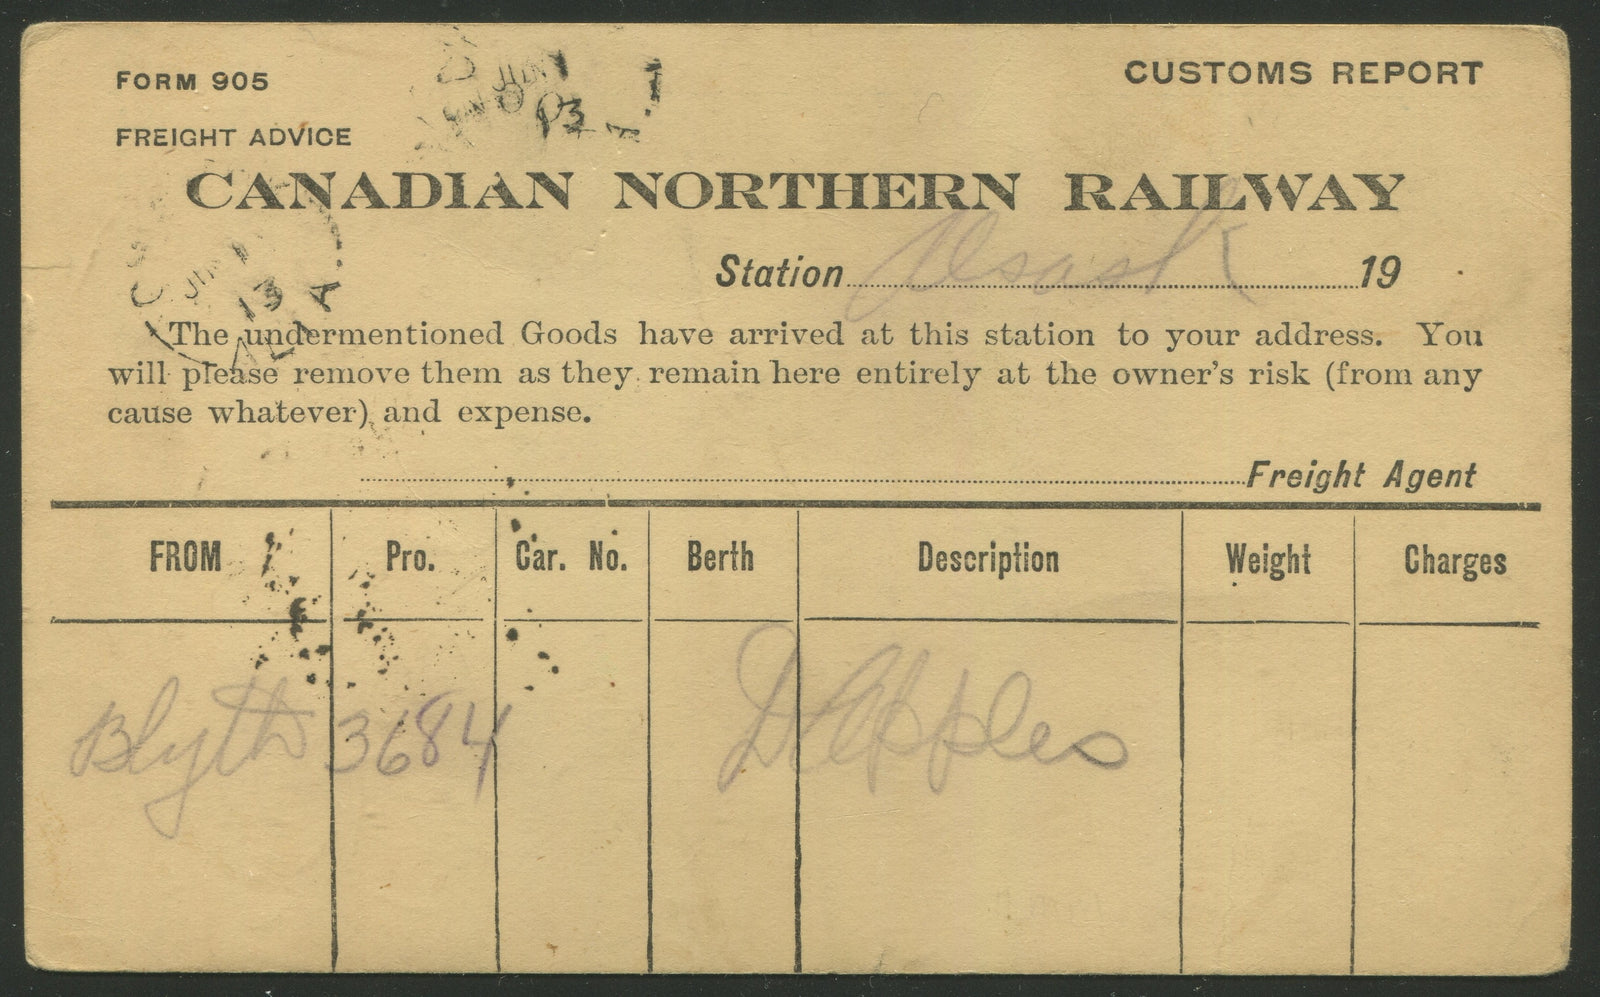 FORM 905
CUSTOMS REPORT
FREIGHT ADVICE
JUN 13
CANADIAN NORTHERN RAILWAY
Station 19
JUN 13
ALTA.
The undermentioned Goods have arrived at this station to your address. You
will please remove them as they remain here entirely at the owner's risk (from any
cause whatever) and expense.
Freight Agent
FROM Pro. Car. No. Berth Description Weight Charges
Blyth 3684 D Apples